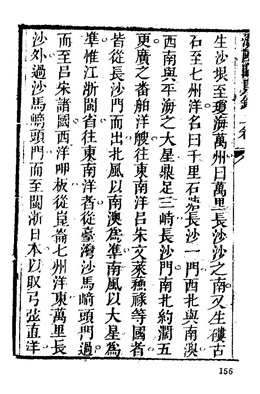 生沙垠至瓊海萬州曰萬里長沙沙之南又生嵝古
石至七州洋名曰千里石塘長沙一門西北與南澳
西南與平海之大星鼎足三峙長沙門南北約濶五
更廣之番舶洋艘往東南洋呂宋文萊穌祿等國者
皆從長沙門而出北風以南澳為準南風以大星為
準惟江浙閩省往東南洋者從臺灣沙馬崎頭門過
而至呂宋諸國西洋呷板從崑崙七州洋東萬里長
沙外過沙馬崎頭門而至閩浙日本以取弓弦直洋
156